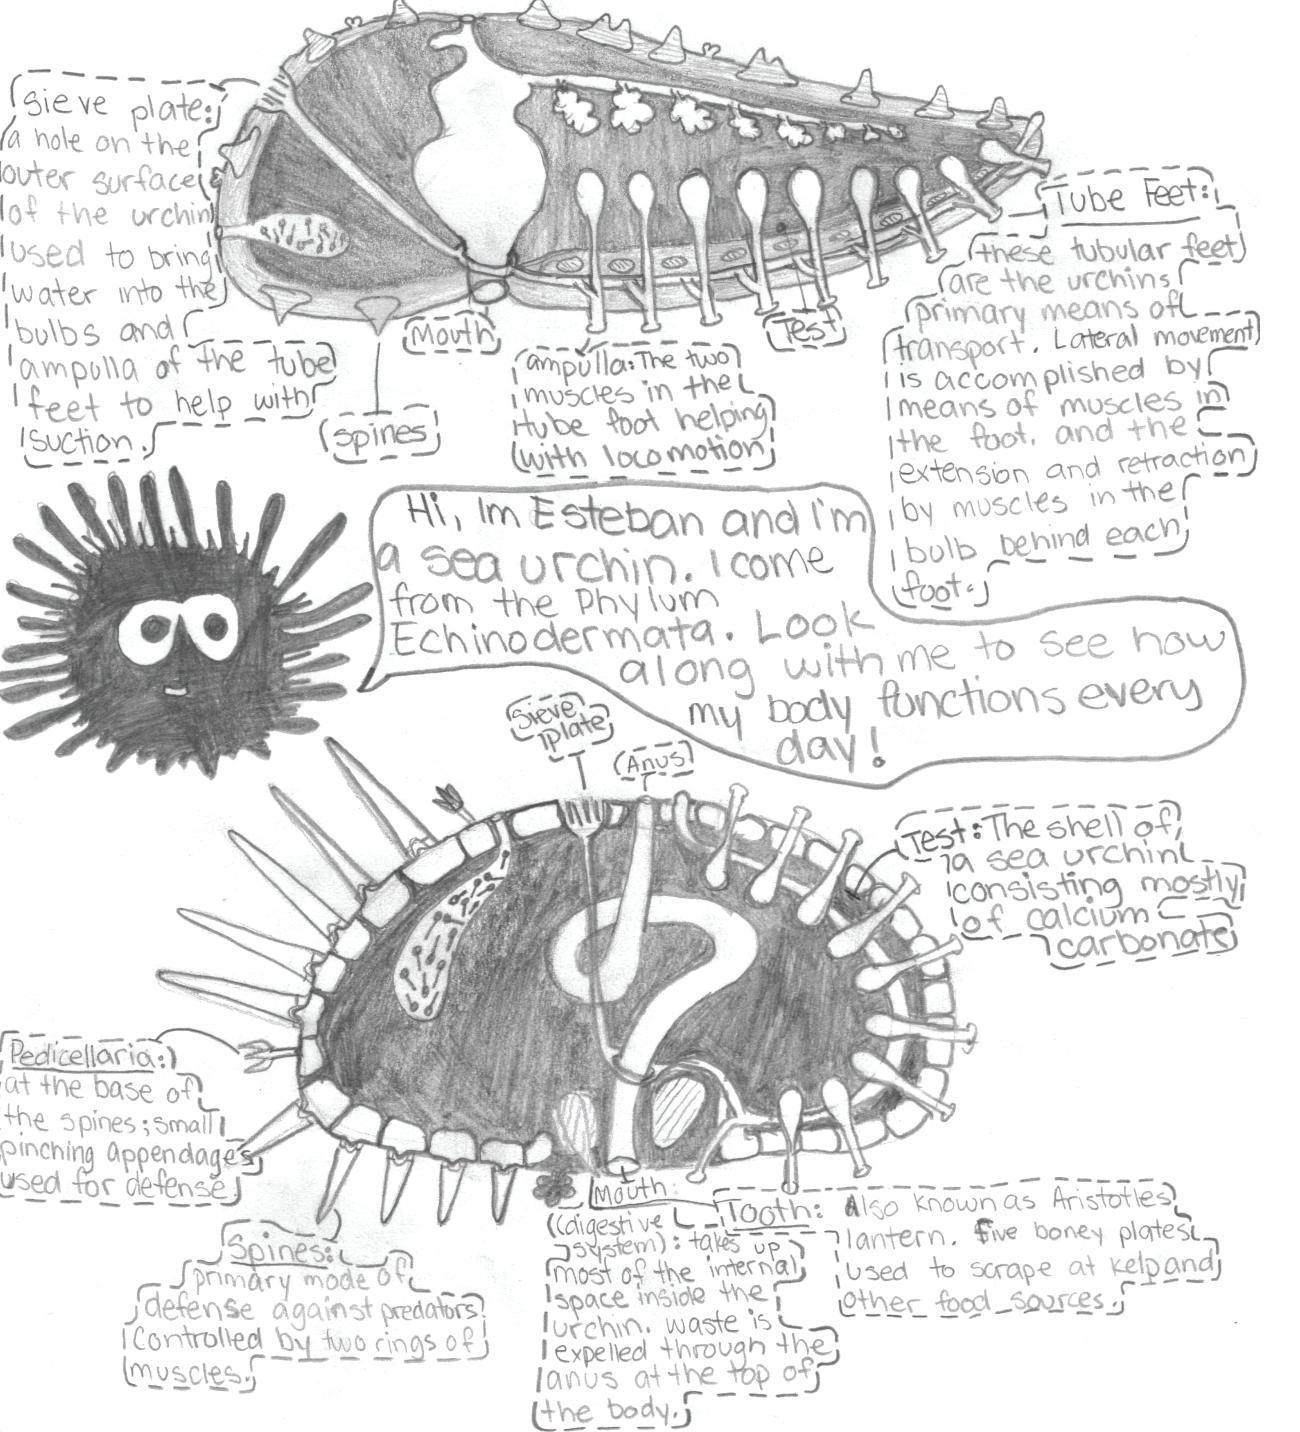 Sieve plate:
a hole on the
outer surface
of the urchin
used to bring
water into the
bulbs and
ampulla of the tube
feet to help with
suction.
spines
Mouth
ampulla: The two
muscles in the
tube foot helping
with locomotion
Test
Tube Feet:
these tubular feet
are the urchins
primary means of
transport. Lateral movement
is accomplished by
means of muscles in
the foot. and the
extension and retraction
by muscles in the
bulb behind each
foot.
Hi, Im Esteban and i'm
a sea urchin. I come
from the Phylum
Echinodermata. Look
along with me to see how
my body functions every
day!
Sieve
plate
Anus
Test: The shell of
a sea urchin
consisting mostly
of calcium
carbonate
Pedicellaria:
at the base of
the spines; small
pinching appendages
used for defense.
Spines:
primary mode of
defense against predators
controlled by two rings of
muscles.
Mouth:
(digestive
system): takes up
most of the internal
space inside the
urchin. waste is
expelled through the
anus at the top of
the body.
Tooth: Also known as Aristotles
lantern. five boney plates
used to scrape at kelp and
other food sources.